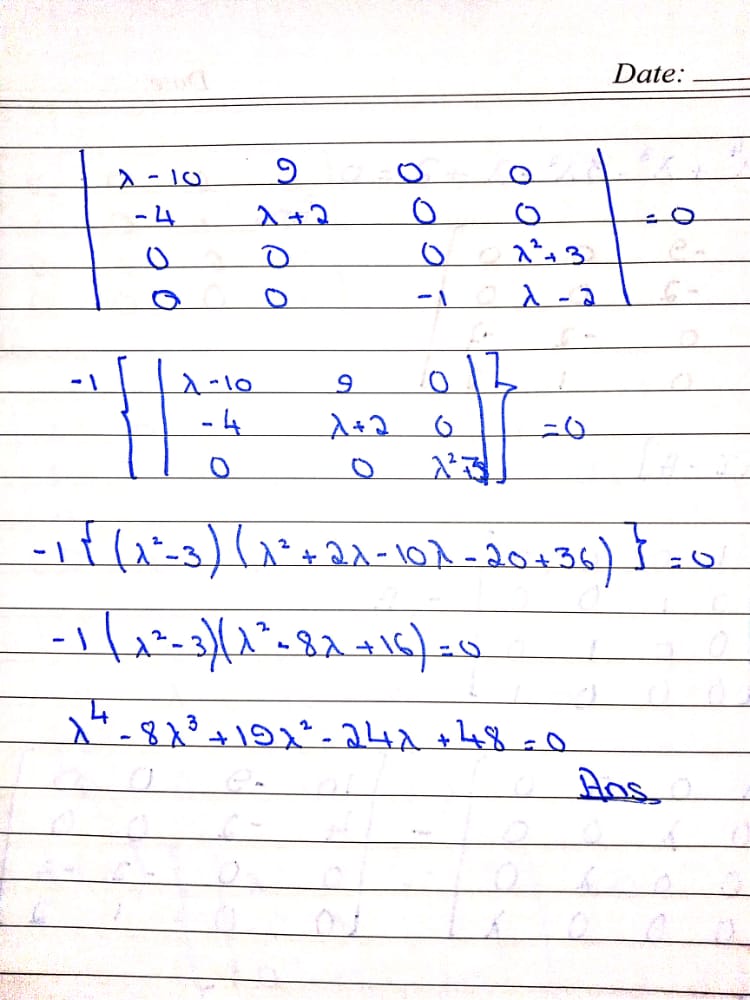 Date:
| λ - 10 9 0 0 |
| -4 λ + 2 0 0 | = 0
| 0 0 0 λ² + 3 |
| 0 0 -1 λ - 2 |
-1 { [ | λ - 10 9 0 | ] }
| -4 λ + 2 0 | = 0
| 0 0 λ² |
-1 { (λ² - 3) (λ² + 2λ - 10λ - 20 + 36) } = 0
-1 (λ² - 3)(λ² - 8λ + 16) = 0
λ⁴ - 8λ³ + 19λ² - 24λ + 48 = 0
Ans